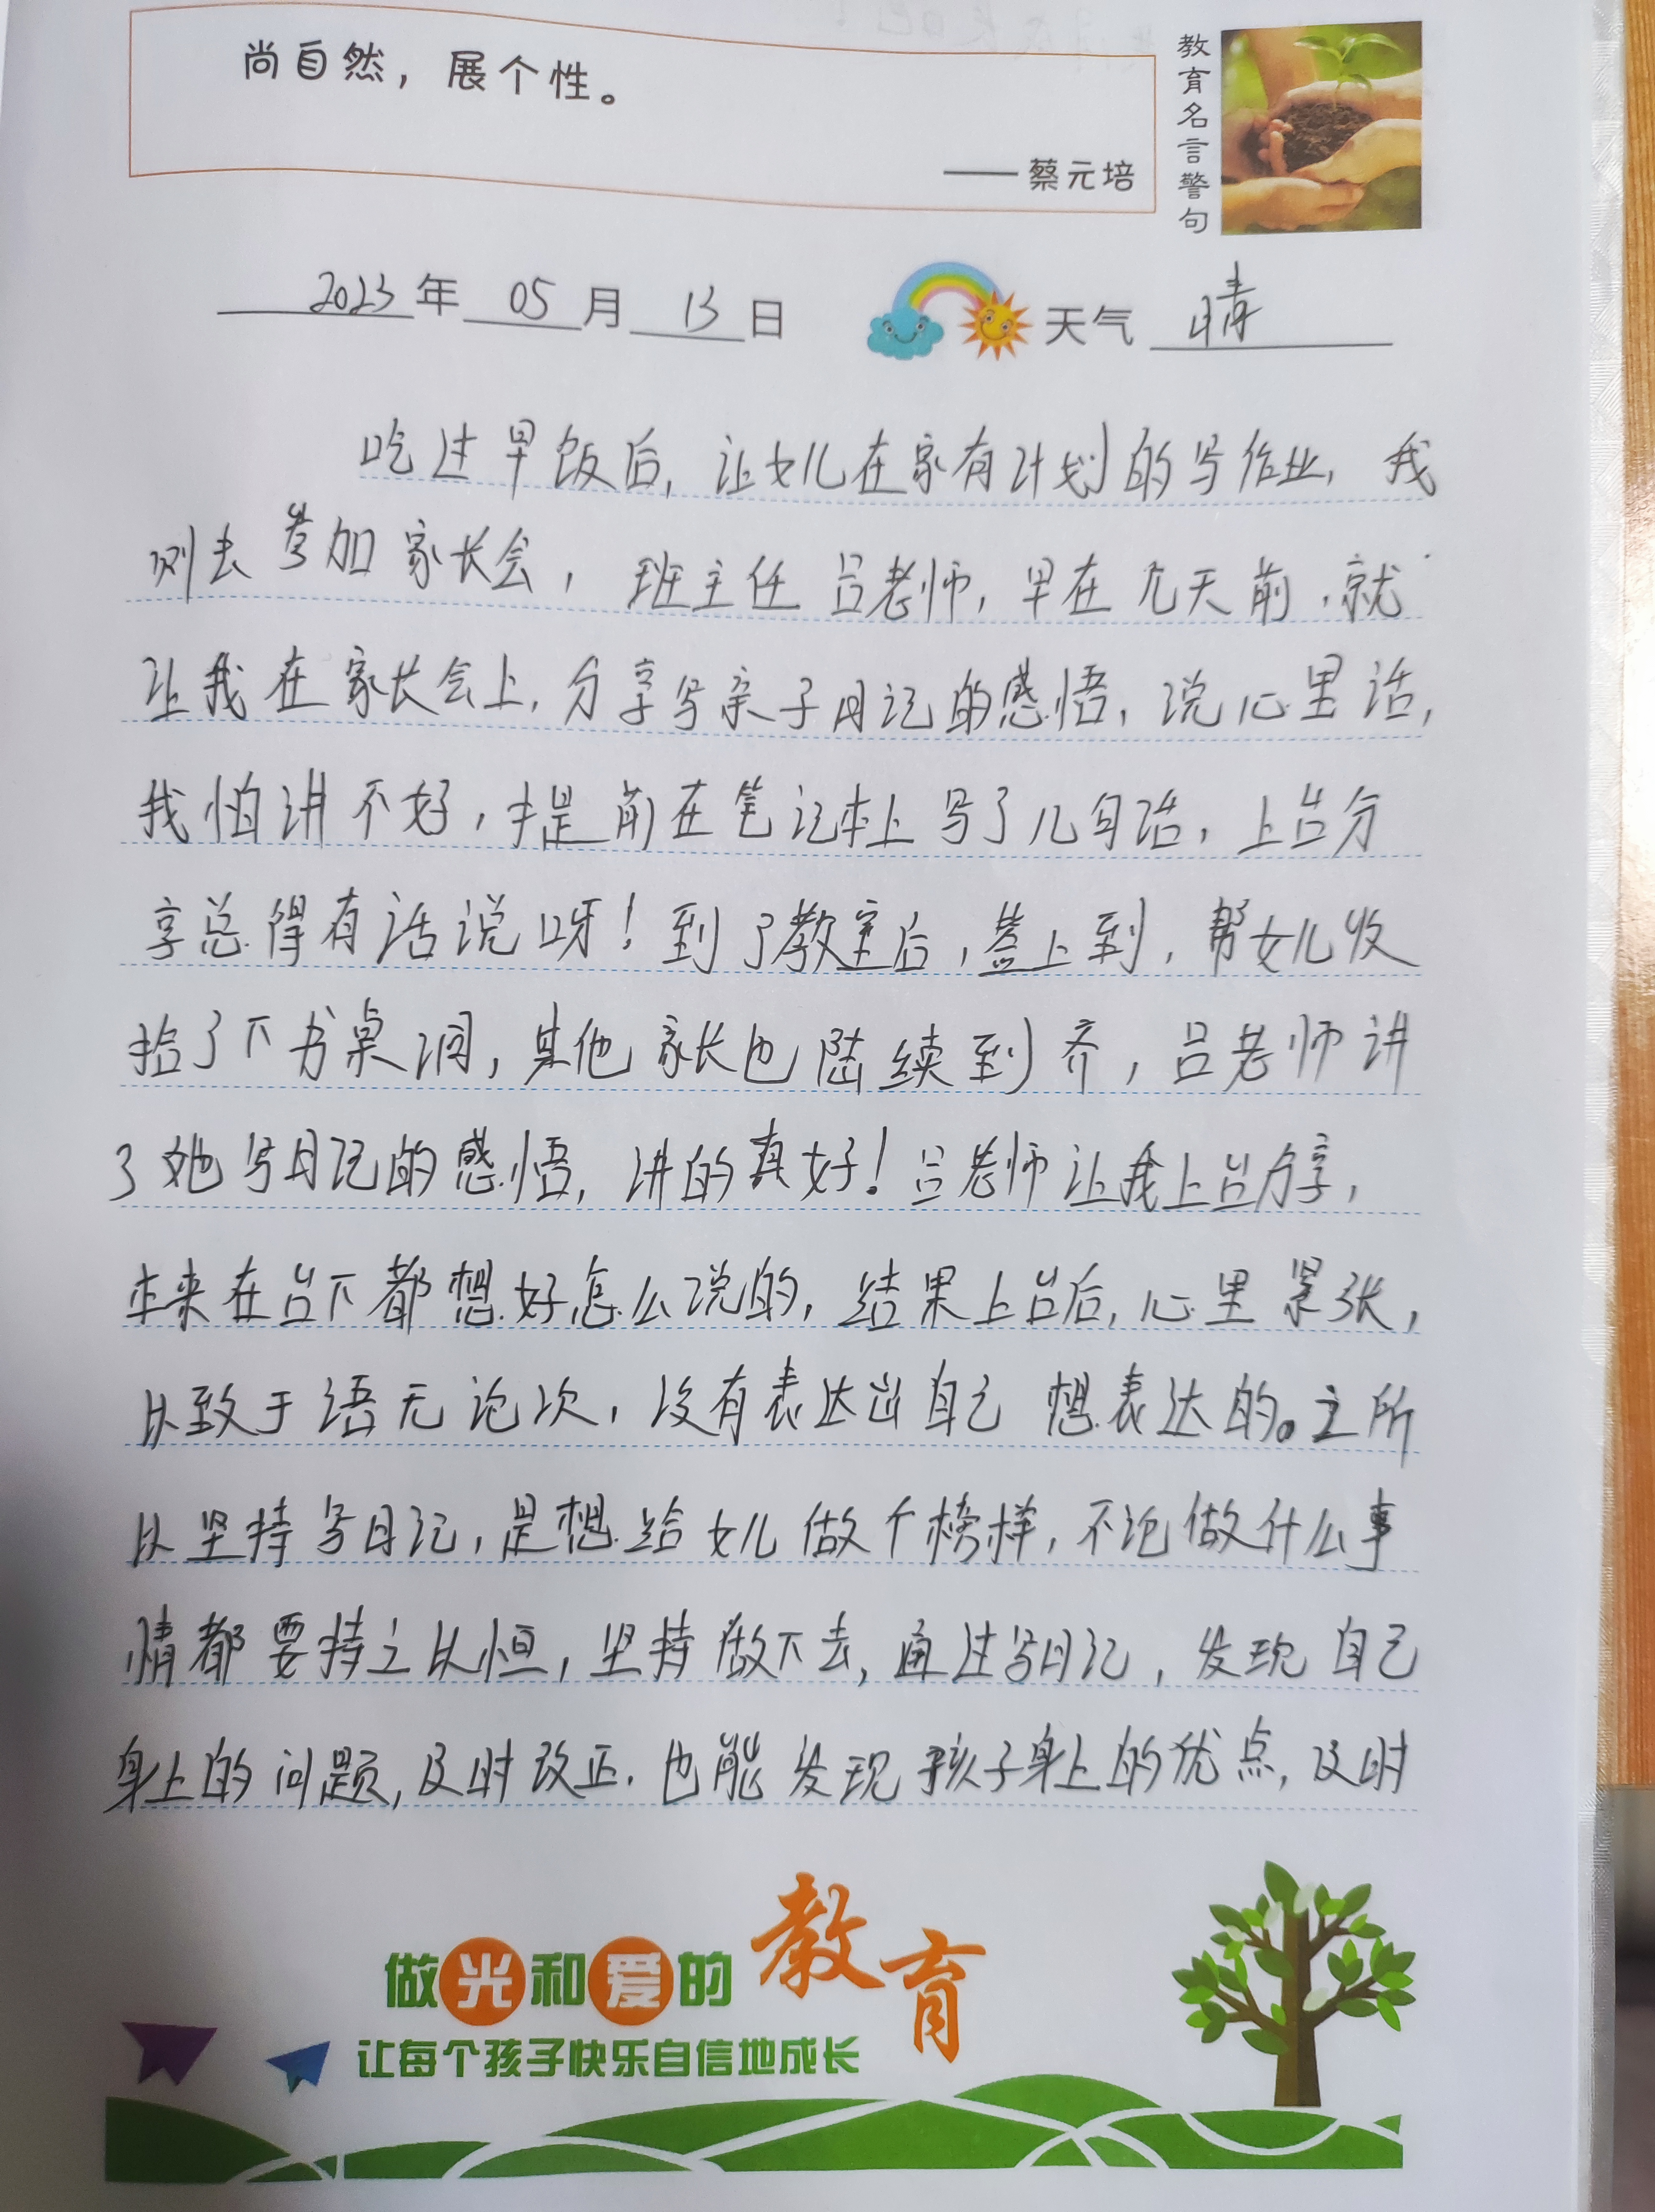 尚自然，展个性。
——蔡元培
教育名言警句
2023年05月13日 天气 晴
吃过早饭后，让女儿在家有计划的写作业，我
则去参加家长会，班主任吕老师，早在几天前，就
让我在家长会上，分享写亲子日记的感悟，说心里话，
我怕讲不好，提前在笔记本上写了几句话，上台分
享总得有话说呀！到了教室后，签上到，帮女儿收
拾了下书桌洞，其他家长也陆续到齐，吕老师讲
了她写日记的感悟，讲的真好！吕老师让我上台分享，
本来在台下都想好怎么说的，结果上台后，心里紧张，
以致于语无论次，没有表达出自己想表达的。之所
以坚持写日记，是想给女儿做个榜样，不论做什么事
情都要持之以恒，坚持做下去，通过写日记，发现自己
身上的问题，及时改正，也能发现孩子身上的优点，及时
做光和爱的教育
让每个孩子快乐自信地成长